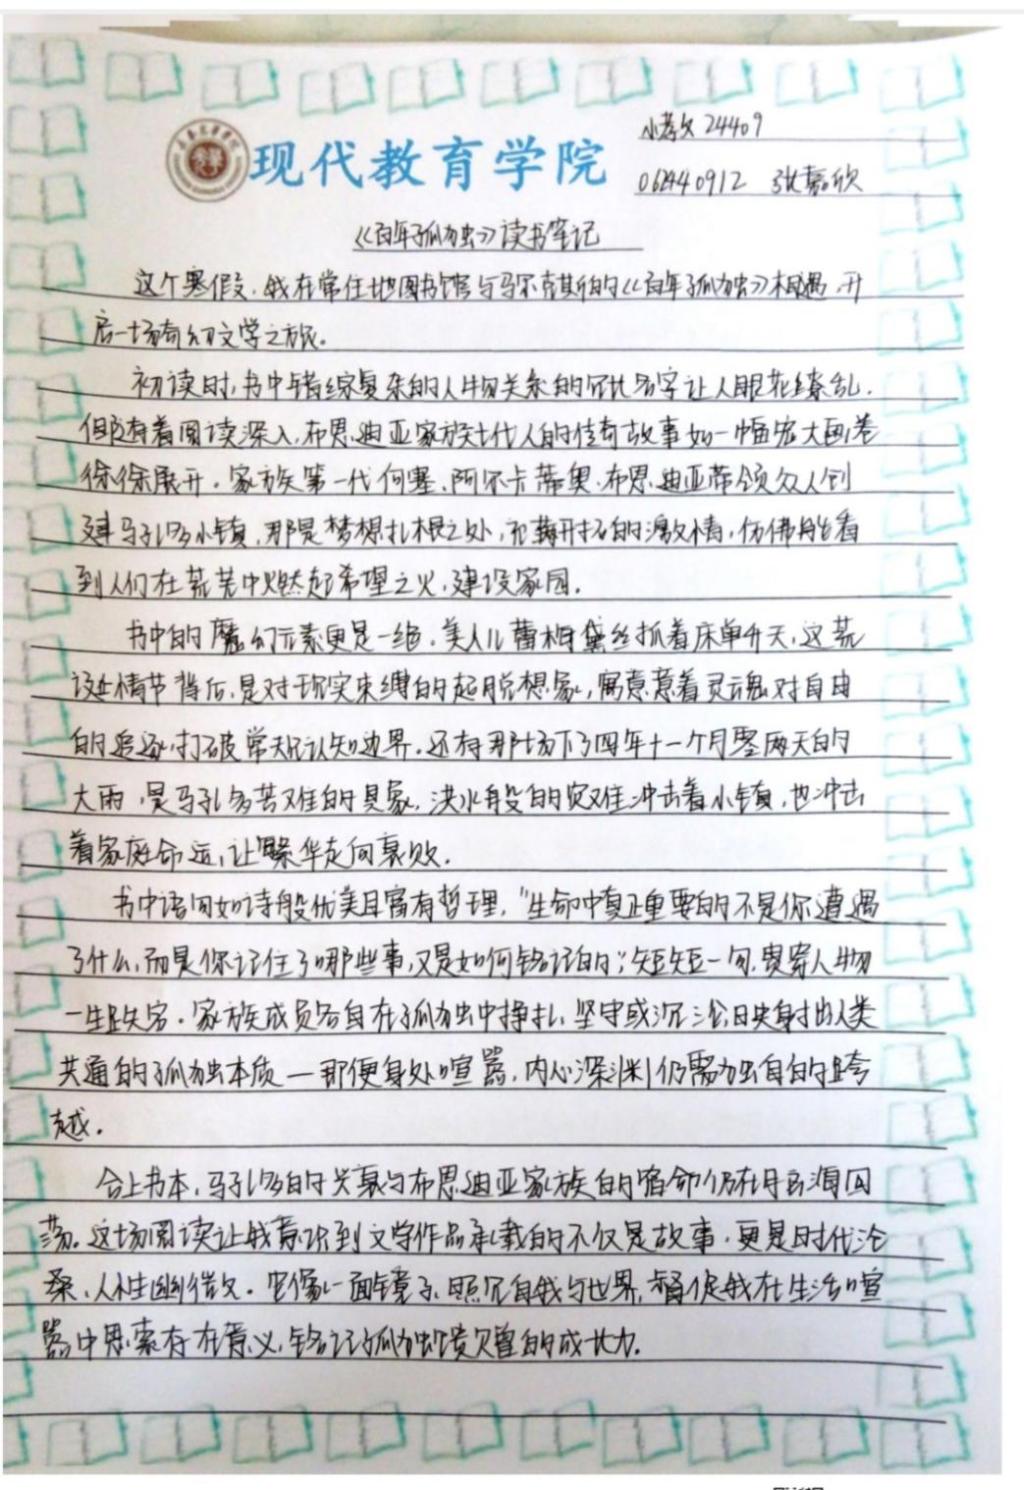 小教文24409
现代教育学院
062440912 张嘉欣
《百年孤独》读书笔记
这个寒假，我在常住地图书馆与马尔克斯的《百年孤独》相遇，开
启一场奇幻文学之旅。
初读时，书中错综复杂的人物关系的冗长名字让人眼花缭乱，
但随着阅读深入，布恩迪亚家族七代人的传奇故事如一幅宏大画卷
徐徐展开。家族第一代何塞·阿尔卡蒂奥·布恩迪亚带领众人创
建马孔多小镇，那是梦想扎根之处，充满开拓的激情，仿佛能看
到人们在荒芜中燃起希望之火，建设家园。
书中的魔幻元素更是一绝，美人儿蕾梅黛丝抓着床单升天，这荒
诞情节背后，是对现实束缚的超脱想象，寓意意着灵魂对自由
的追逐，打破常规认知边界。还有那场下了四年十一个月零两天的
大雨，是马孔多苦难的具象，洪水般的灾难冲击着小镇，也冲击
着家庭命运，让繁华走向衰败。
书中语句如诗般优美且富有哲理，“生命中真正重要的不是你遭遇
了什么，而是你记住了哪些事，又是如何铭记的”；短短一句，贯穿人物
一生跌宕。家族成员各自在孤独中挣扎、坚守或沉沦，映射出人类
共通的孤独本质—那便身处喧嚣，内心深渊仍需独自的跨
越。
合上书本，马孔多的兴衰与布恩迪亚家族的宿命仍在脑海回
荡。这场阅读让我意识到文学作品承载的不仅是故事，更是时代沧
桑、人性幽微。它像一面镜子，照见自我与世界，督促我在生活喧
嚣中思索存在意义，铭记孤独馈赠的成长力。